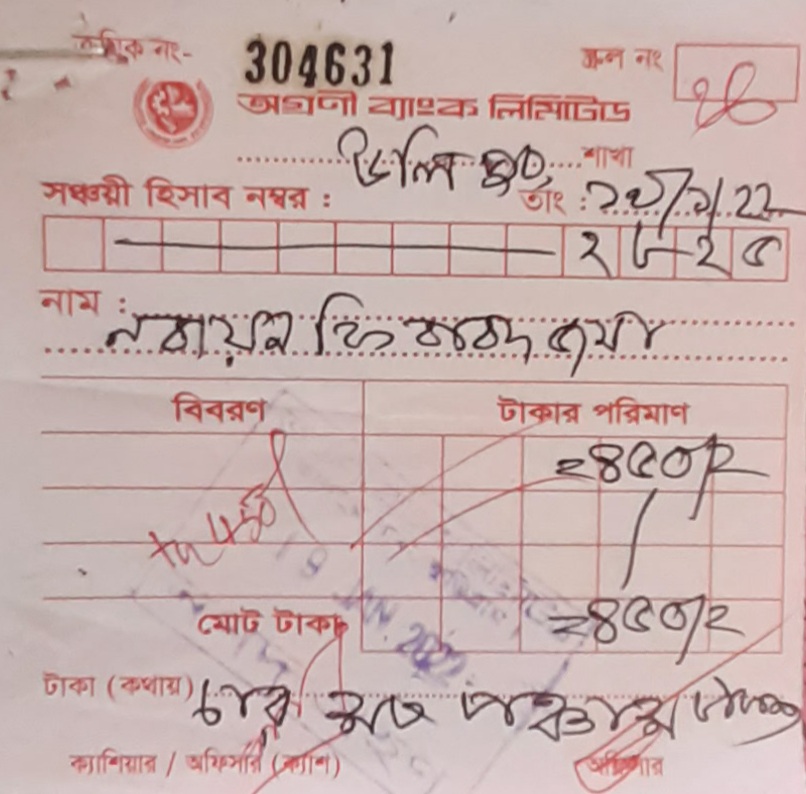 ক্রমিক নং- 304631 স্ক্রল নং
অগ্রণী ব্যাংক লিমিটেড
উলিপুর শাখা
সঞ্চয়ী হিসাব নম্বর : তাং : ১৯/১/22
২৮২৫
নাম :
বিবরণ টাকার পরিমাণ
=৪৫০/=
TK 450
19 JAN 2022
মোট টাকা =৪৫০/=
টাকা (কথায়) চার শত পঞ্চাশ টাকা
ক্যাশিয়ার / অফিসার (ক্যাশ) অফিসার